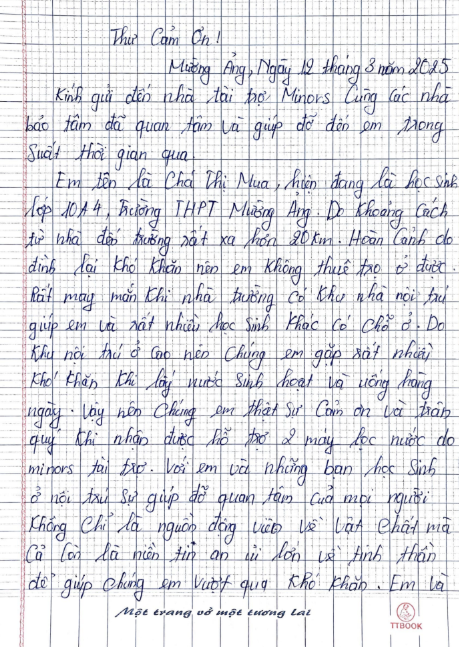 Thư Cảm Ơn!
Mường Ảng, Ngày 12 tháng 3 năm 2025
Kính gửi đến nhà tài trợ Minors Cùng Các nhà
bảo tâm đã quan tâm và giúp đỡ đến em trong
Suất thời gian qua.
Em tên là Chá Thị Mua, hiện đang là học sinh
lớp 10A4, trường THPT Mường Ảng. Do Khoảng Cách
từ nhà đến trường rất xa hơn 20Km. Hoàn Cảnh do
đình lại Khó Khăn nên em Không thuê trọ ở được.
Rất may mắn Khi nhà trường có Khu nhà nội trú
giúp em và rất nhiều học Sinh Khác Có Chỗ ở. Do
Khu nội trú ở Cao nên Chúng em gặp rất nhiều
Khó Khăn Khi lấy nước Sinh hoạt và uống hàng
ngày. Vậy nên Chúng em thật Sự Cảm ơn và trân
quý Khi nhận được hỗ trợ 2 máy lọc nước do
minors tài trợ. Với em và những bạn học Sinh
ở nội trú Sự giúp đỡ quan tâm của mọi người
Không Chỉ là nguồn động viên về vật Chất mà
Cả Còn là niền tin an ủi lớn về tinh thần
để giúp Chúng em Vượt qua Khó Khăn. Em và
Một trang vở một tương lai
TTBOOK